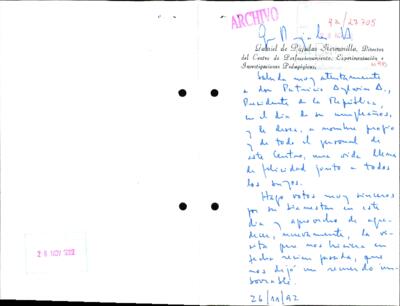 ARCHIVO
92/27705
Gabriel de Pujadas Hermosilla, Director
del Centro de Perfeccionamiento, Experimentación e
Investigaciones Pedagógicas,
Saluda muy atentamente
a don Patricio Aylwin A.,
Presidente de la República,
en el día de su cumpleaños,
y le desea, a nombre propio
y de todo el personal de
este Centro, una vida llena
de felicidad junto a todos
los suyos.
Hago votos muy sinceros
por su bienestar en este
día y aprovecho de agra-
decer, nuevamente, la vi-
sita que nos hiciera en
fecha recién pasada, que
nos dejó un recuerdo im-
borrable.
26/11/92
26 NOV 1992